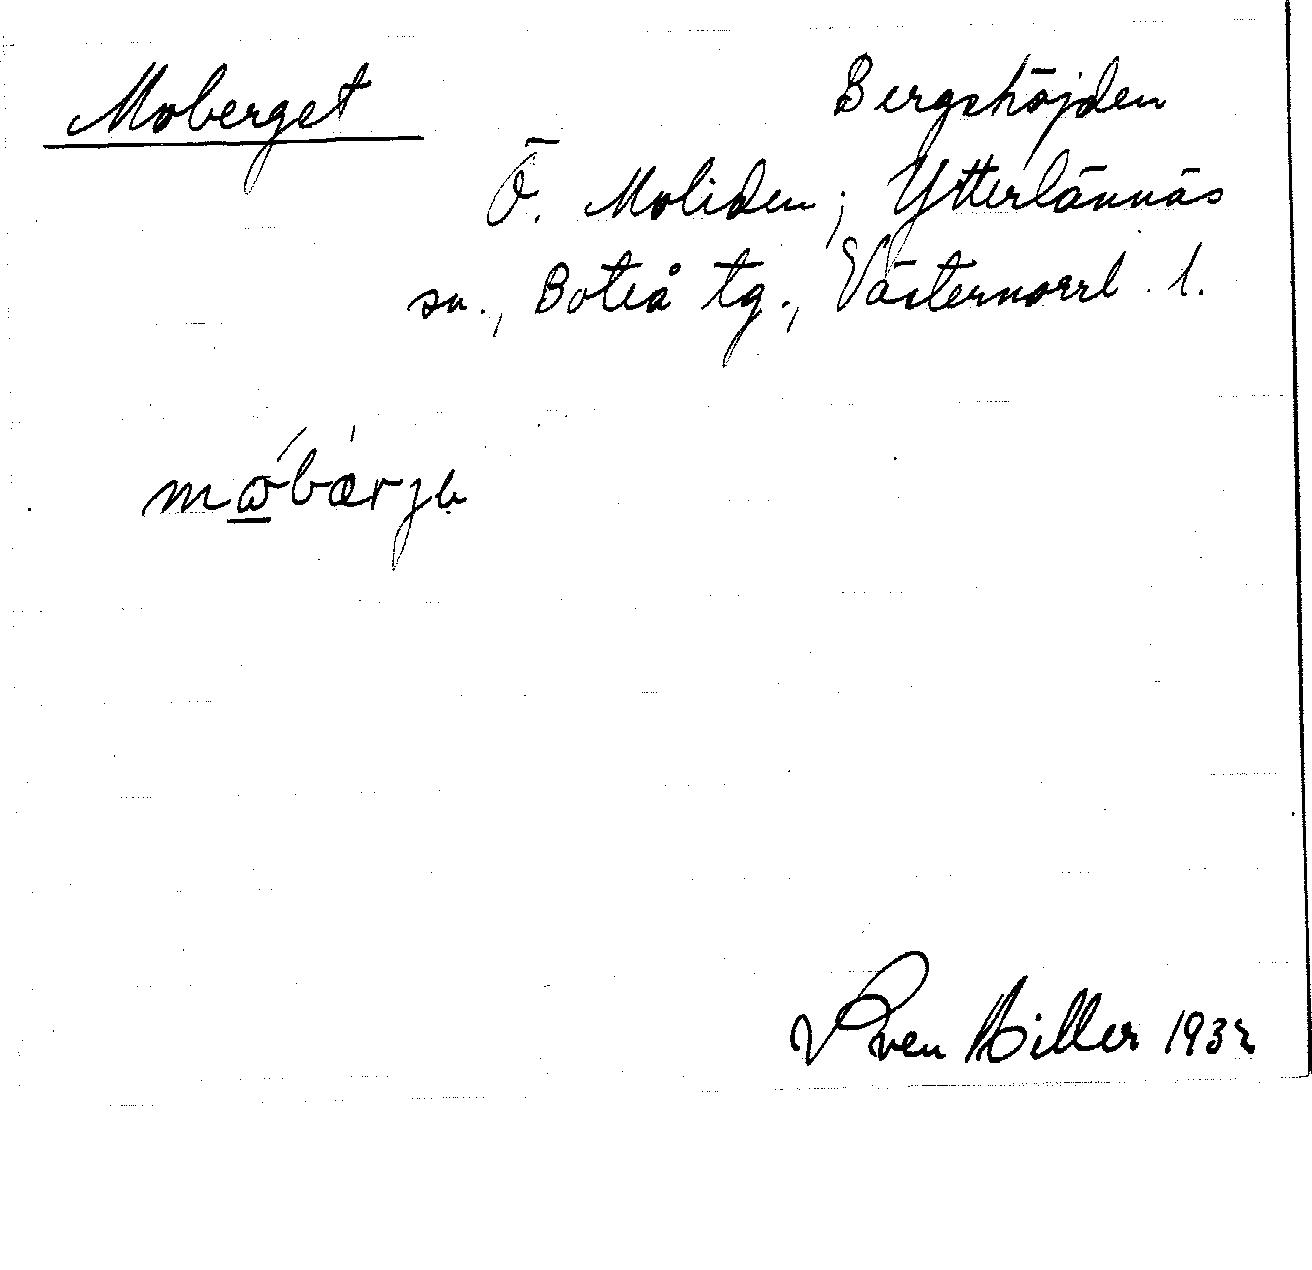 Moberget
Bergshöjden
Ö. Moliden, Ytterlännäs
sn., Boteå tg., Västernorrl. l.
Sven Hiller 1932